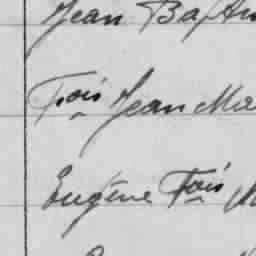 Jean Bapt
Fois Jean Ma
Eugène Fois M